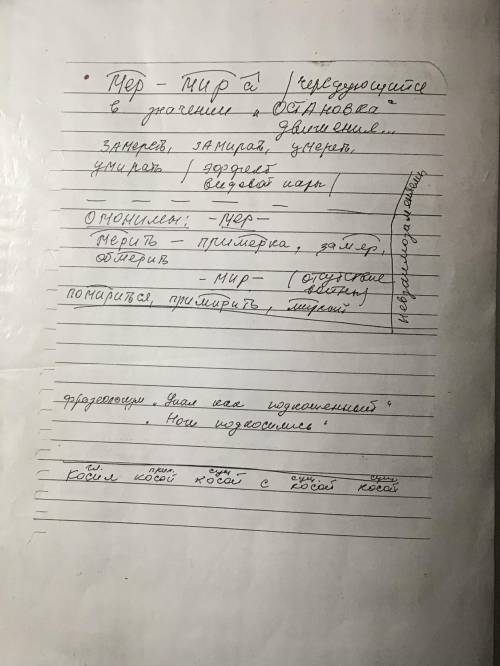 Мер – мир â /чередующийся
в значении „ОСТАНОВКА"
движения...
замереть, замирать, умереть,
умирать / эффект
видовой пары/
Омонимы: –мер–
мерить – примерка, замер,
обмерить
–мир– (отсутствие
войны)
помириться, примирить, мирный
невзаимозаменяемы
фразеологизм „Упал как подкошенный"
„Ноги подкосились"
гл. прил. сущ. сущ. сущ.
Косил косой косой с косой косой